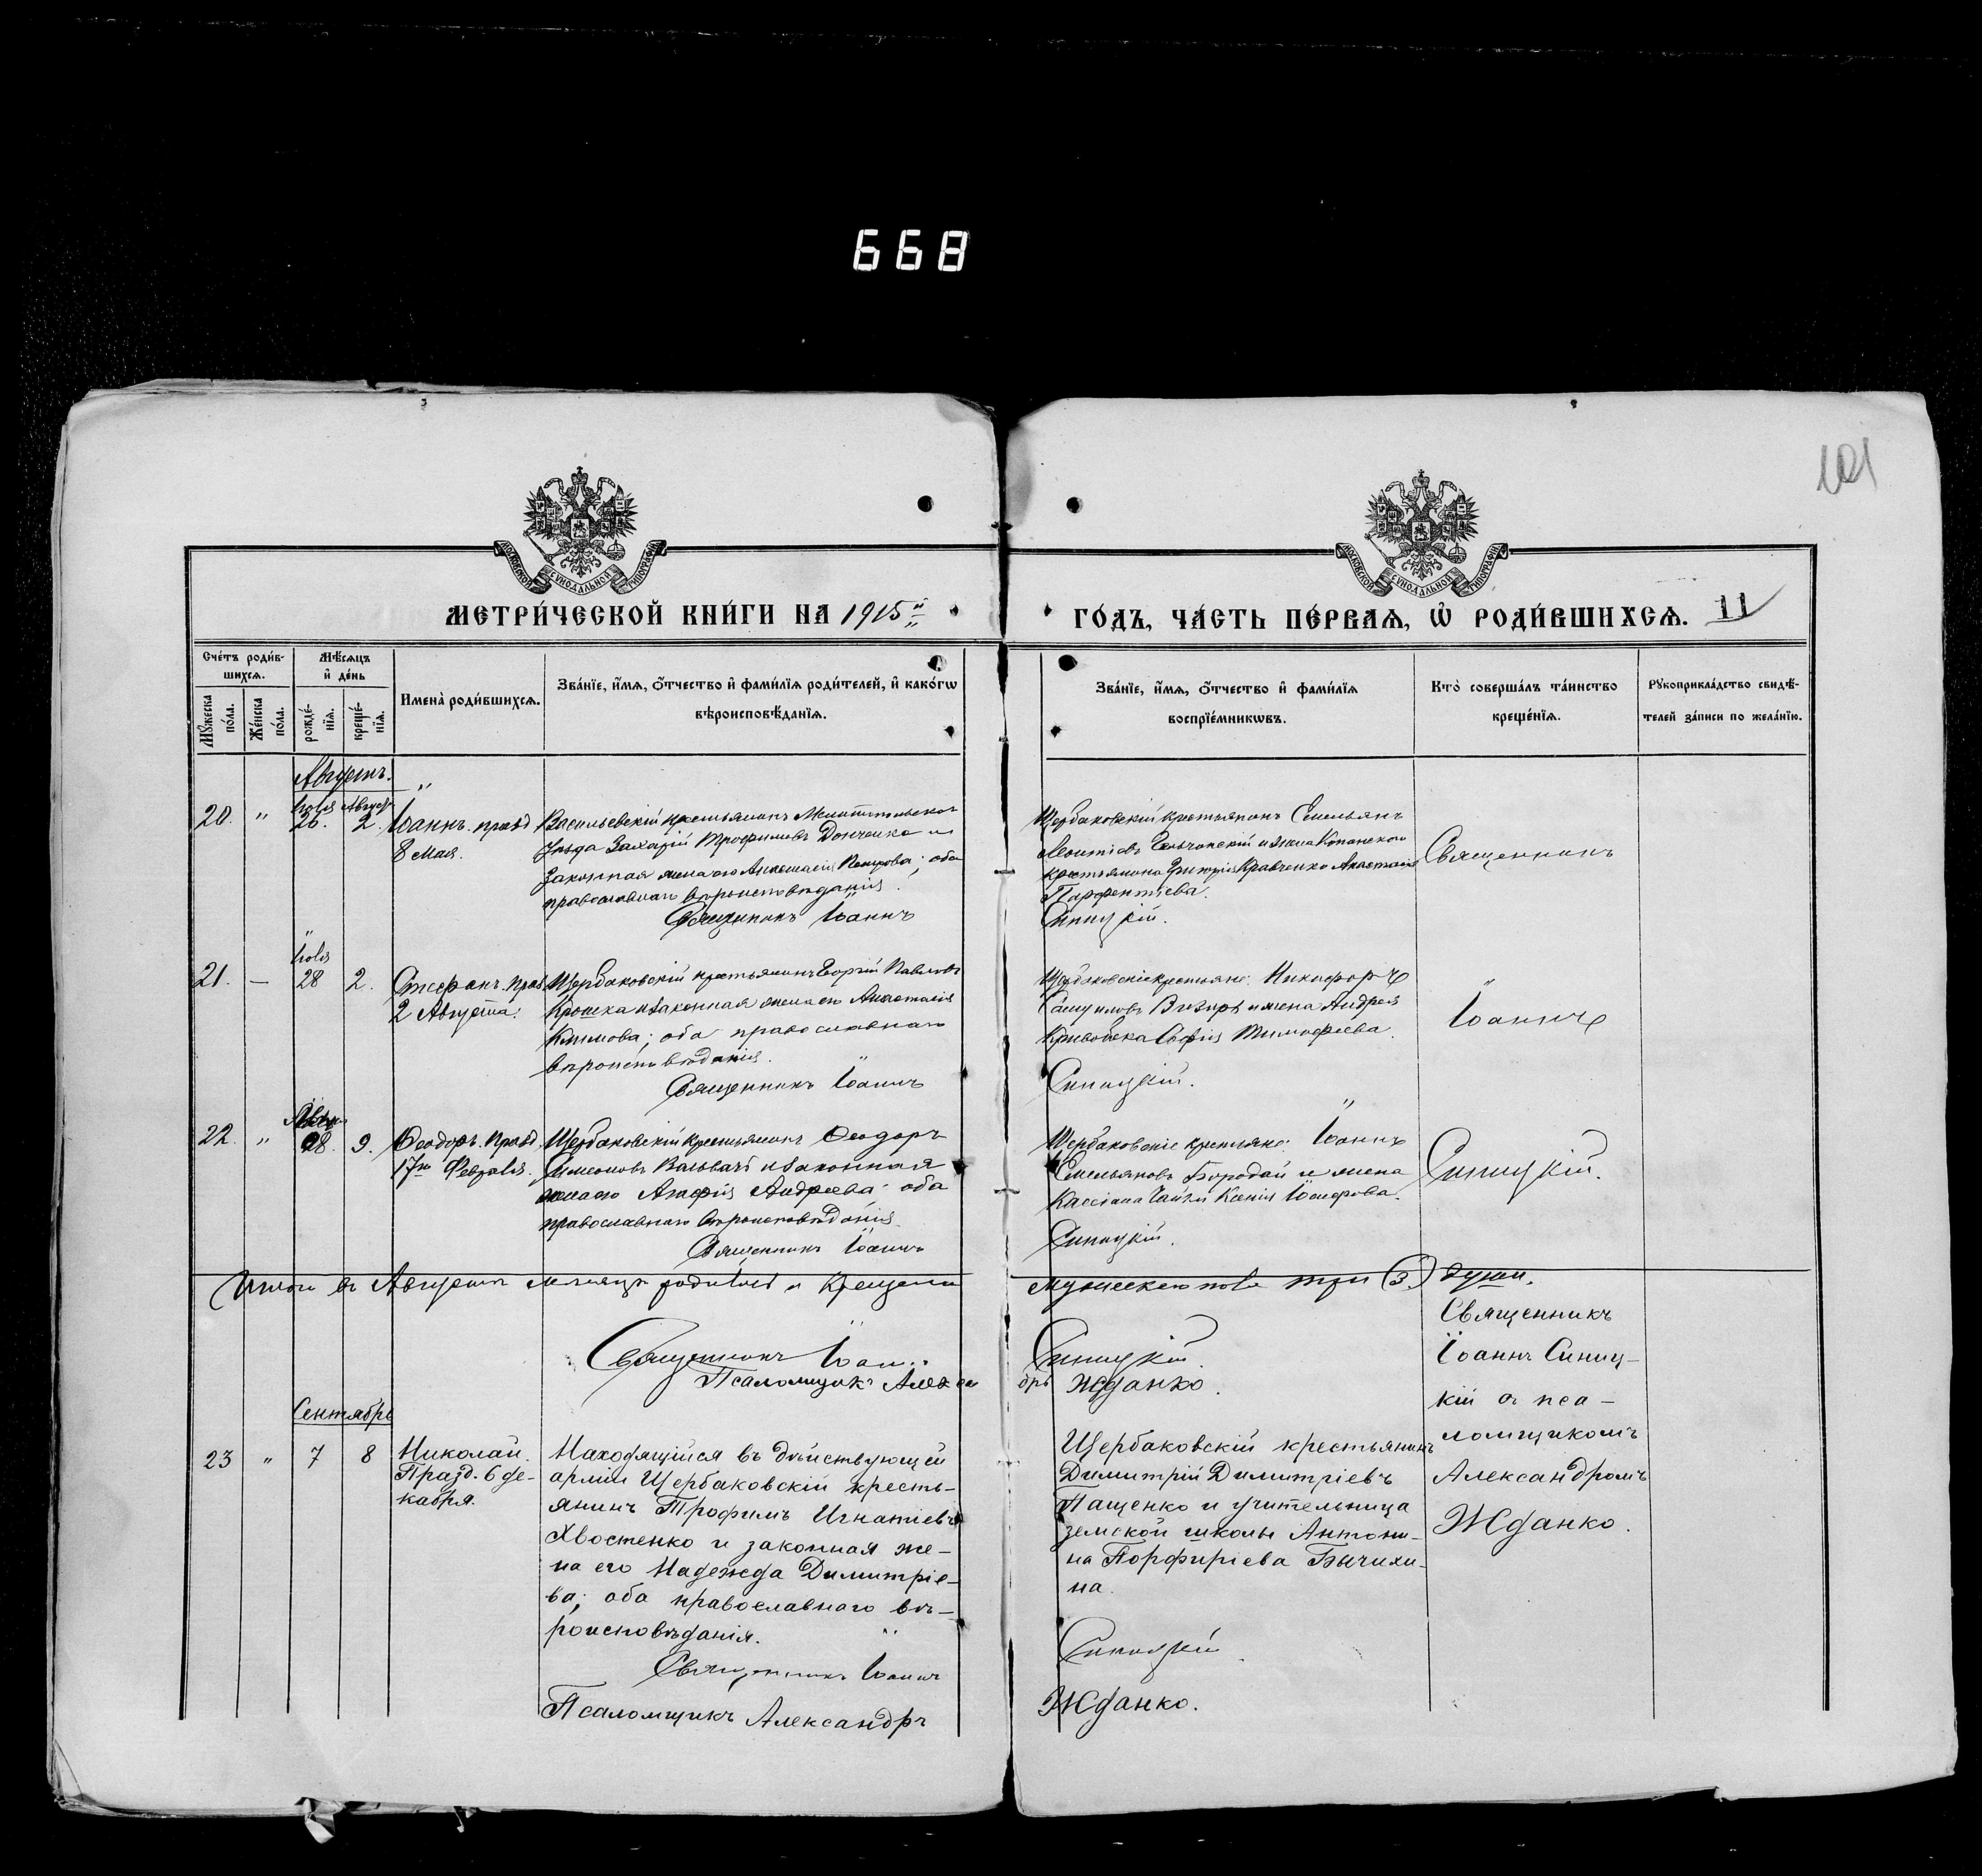 668
101
МОСКОВСКОЙ СѴНОДАЛЬНОЙ ТИПОГРАФІИ
МОСКОВСКОЙ СѴНОДАЛЬНОЙ ТИПОГРАФІИ
МЕТРИ́ЧЕСКОЙ КНИ́ГИ НА 1915й
ГО́ДЪ, ЧА́СТЬ ПЕ́РВАѦ, Ѡ҆ РОДИ́ВШИХСѦ. 11
Сче́тъ роди́в-
шихсѧ.
Мꙋ́жеска по́ла.
Же́нска по́ла.
Мѣ́сѧцъ
и҆ де́нь
рожде́-нїѧ.
креще́-нїѧ.
И҆мена̀ роди́вшихсѧ.
Зва́нїе, и҆́мѧ, ѻ҆́тчество и҆ фами́лїѧ роди́телей, и҆ како́гѡ
вѣроисповѣ́данїѧ.
Зва́нїе, и҆́мѧ, ѻ҆́тчество и҆ фами́лїѧ
воспрїе́мникѡвъ.
Кто̀ соверша́лъ та́инство
креще́нїѧ.
Рꙋкоприкла́дство свидѣ́-
телей за́писи по жела́нїю.
Августъ.
Іюля Август
20. " 26. 2. Іоаннъ. празд
8 Мая.
Васильевскій крестьянинъ Мелитопольскаго
уѣзда Захарій Трофимовъ Донченко и
законная жена его Анастасія Петрова; оба
православнаго вѣроисповѣданія.
Священникъ Іоаннъ
Щербаковскій крестьянинъ Емельянъ
Леонтіевъ и жена Копанскаго
крестьянина Григорія Кравченко Анастасія
Парфентіева.
Синицкій.
Священникъ
Іюля
21. — 28 2. Стефанъ. праз
2 Августа.
Щербаковскій крестьянинъ Георгій Павловъ
и законная жена его Анастасія
Климова; оба православнаго
вѣроисповѣданія.
Священникъ Іоаннъ
Щербаковскіе крестьяне: Никифоръ
Визирь и жена Андрея
София Тимофеева.
Синицкій.
Іоаннъ
22. " 28. 9. Ѳеодоръ. Празд.
17го Февраля.
Щербаковскій крестьянинъ Ѳеодоръ
Симеоновъ и законная
жена его Агафія Андреева; оба
православнаго вѣроисповѣданія.
Священникъ Іоаннъ
Щербаковскіе крестьяне: Іоаннъ
Емельяновъ Бородай и жена
Кассіана Чайки Ксенія Іосифова.
Синицкій.
Синицкій.
Итого въ Августѣ мѣсяцѣ родилось и крещено
мужескаго пола три (3.) души.
Священникъ Іоаннъ
Синицкій.
Псаломщикъ Алекса
ндръ Жданко.
Сентябрь
23 " 7 8 Николай.
Празд. 6 де-
кабря.
Находящійся въ дѣйствующей
арміи Щербаковскій кресть-
янинъ Трофимъ Игнатіевъ
Хвостенко и законная же-
на его Надежда Димитріе-
ва; оба православнаго вѣ-
роисповѣданія.
Священникъ Іоаннъ
Псаломщикъ Александръ
Щербаковскій крестьянинъ
Димитрій Димитріевъ
Пащенко и учительница
земской школы Антони-
на Порфиріева Бычихи-
на.
Синицкій
Жданко.
Священникъ
Іоаннъ Синиц-
кій съ пса-
ломщикомъ
Александромъ
Жданко.